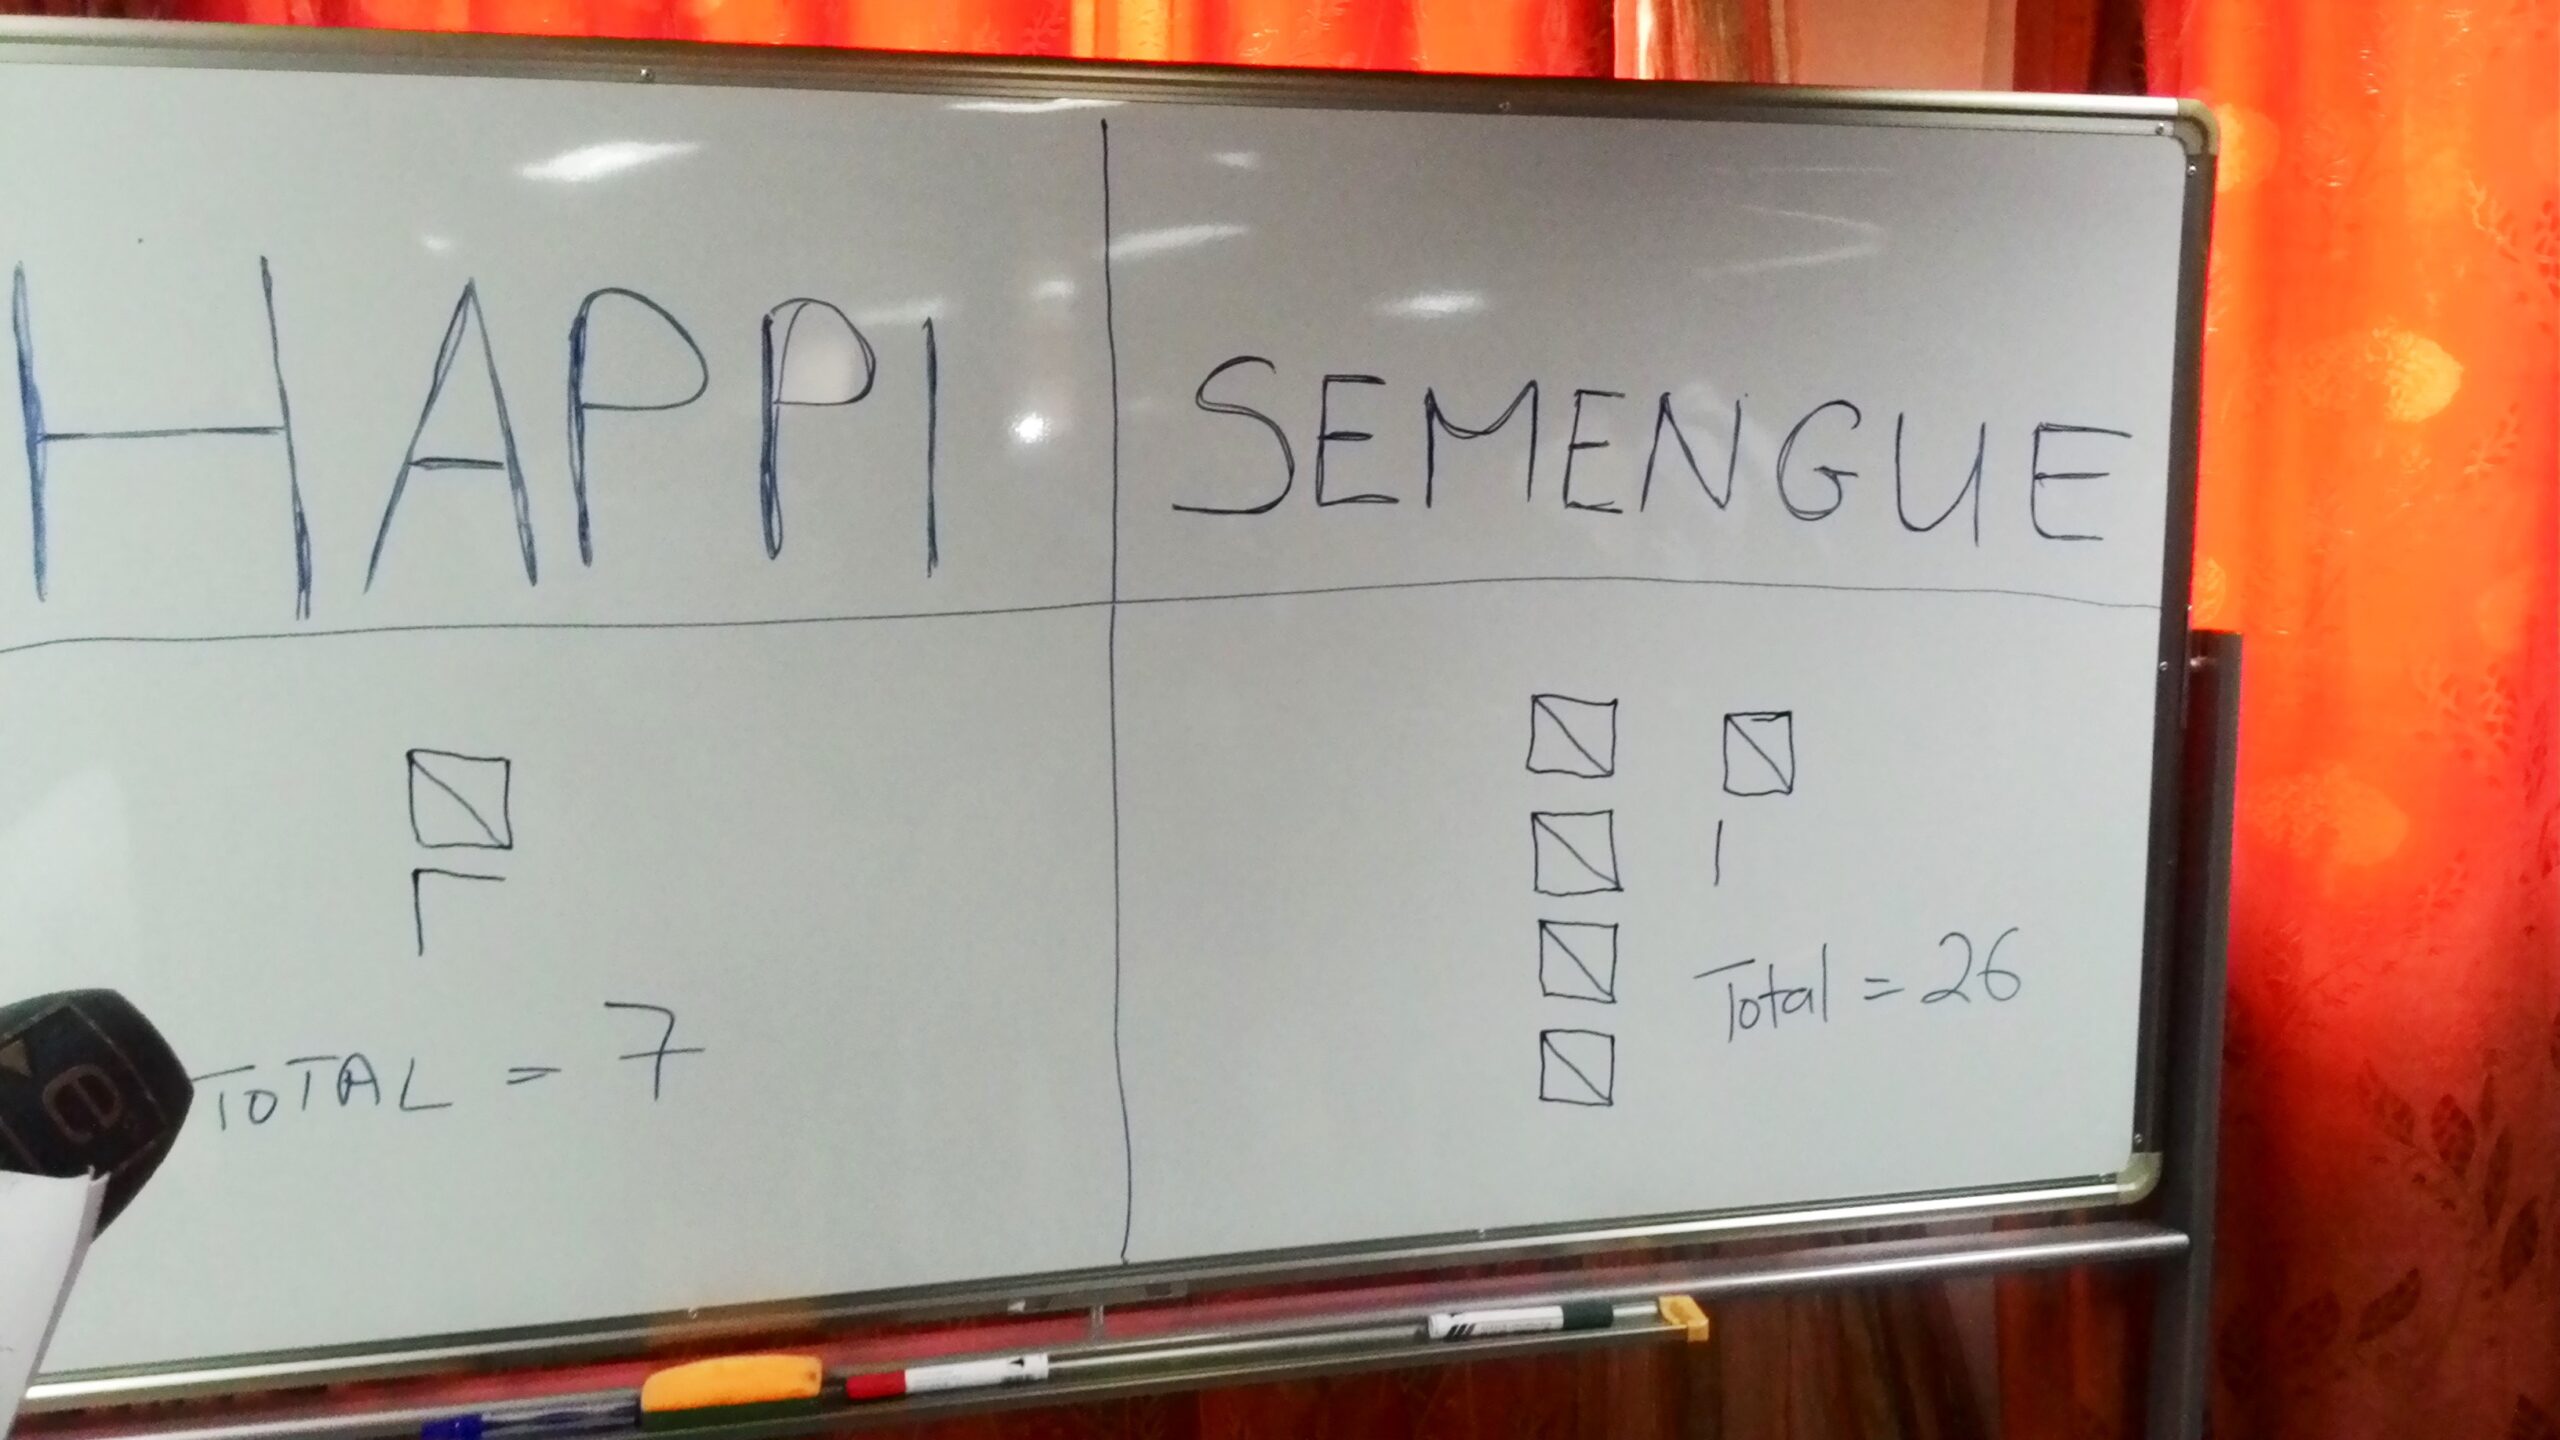 HAPPI
SEMENGUE
TOTAL = 7
Total = 26